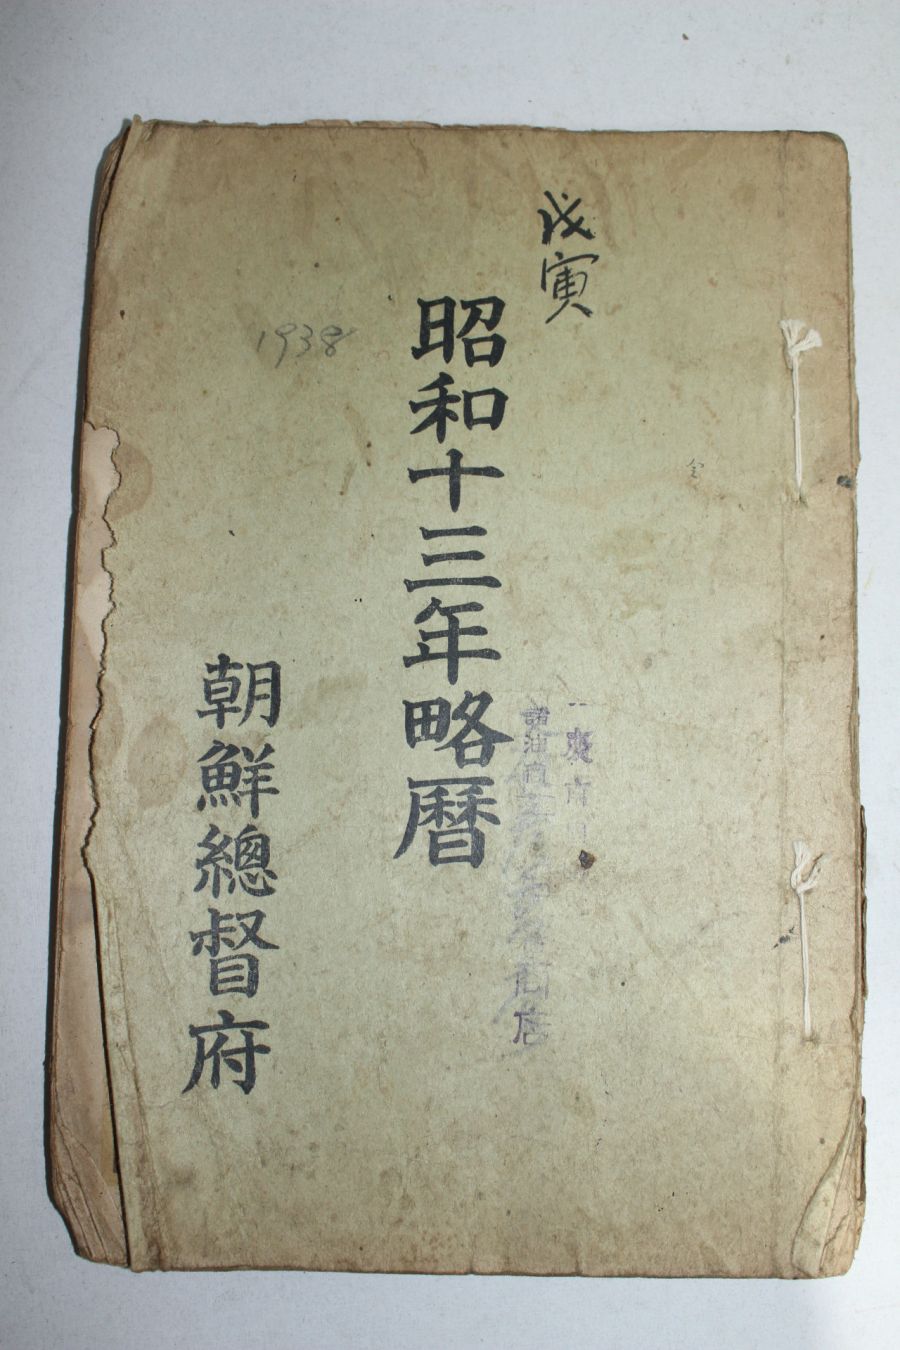 戊寅
昭和十三年略曆
1938
朝鮮總督府
商店